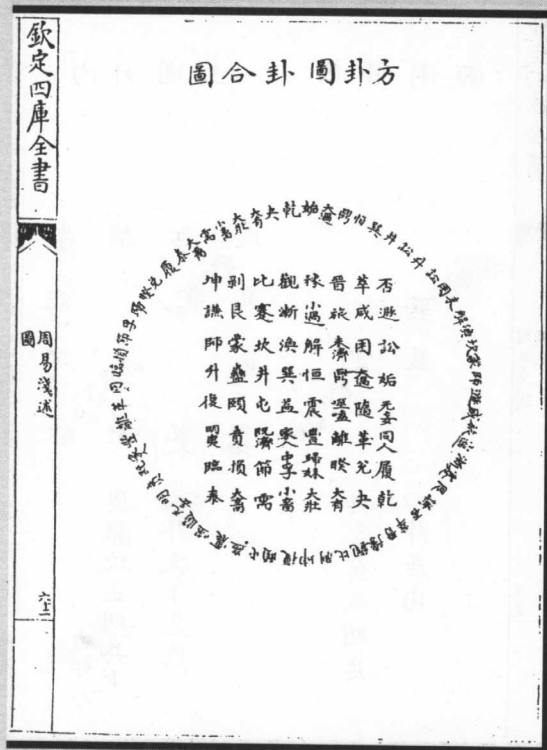 欽定四庫全書
方卦圖卦合圖
乾姤大過鼎恒巽井蠱升訟困未濟解渙坎蒙師遯咸旅小過漸蹇艮謙否萃晉豫觀比剝坤復頤屯益震噬嗑隨无妄明夷賁既濟家人豐離革同人臨損節中孚歸妹睽兌履泰大畜需小畜大壯大有夬
否遯訟姤无妄同人履乾
萃咸困大過隨革兌夬
晉旅未濟鼎噬嗑離睽大有
豫小過解恒震豐歸妹大壯
觀漸渙巽益家人中孚小畜
比蹇坎井屯既濟節需
剝艮蒙蠱頤賁損大畜
坤謙師升復明夷臨泰
周易淺述
圖
六十二